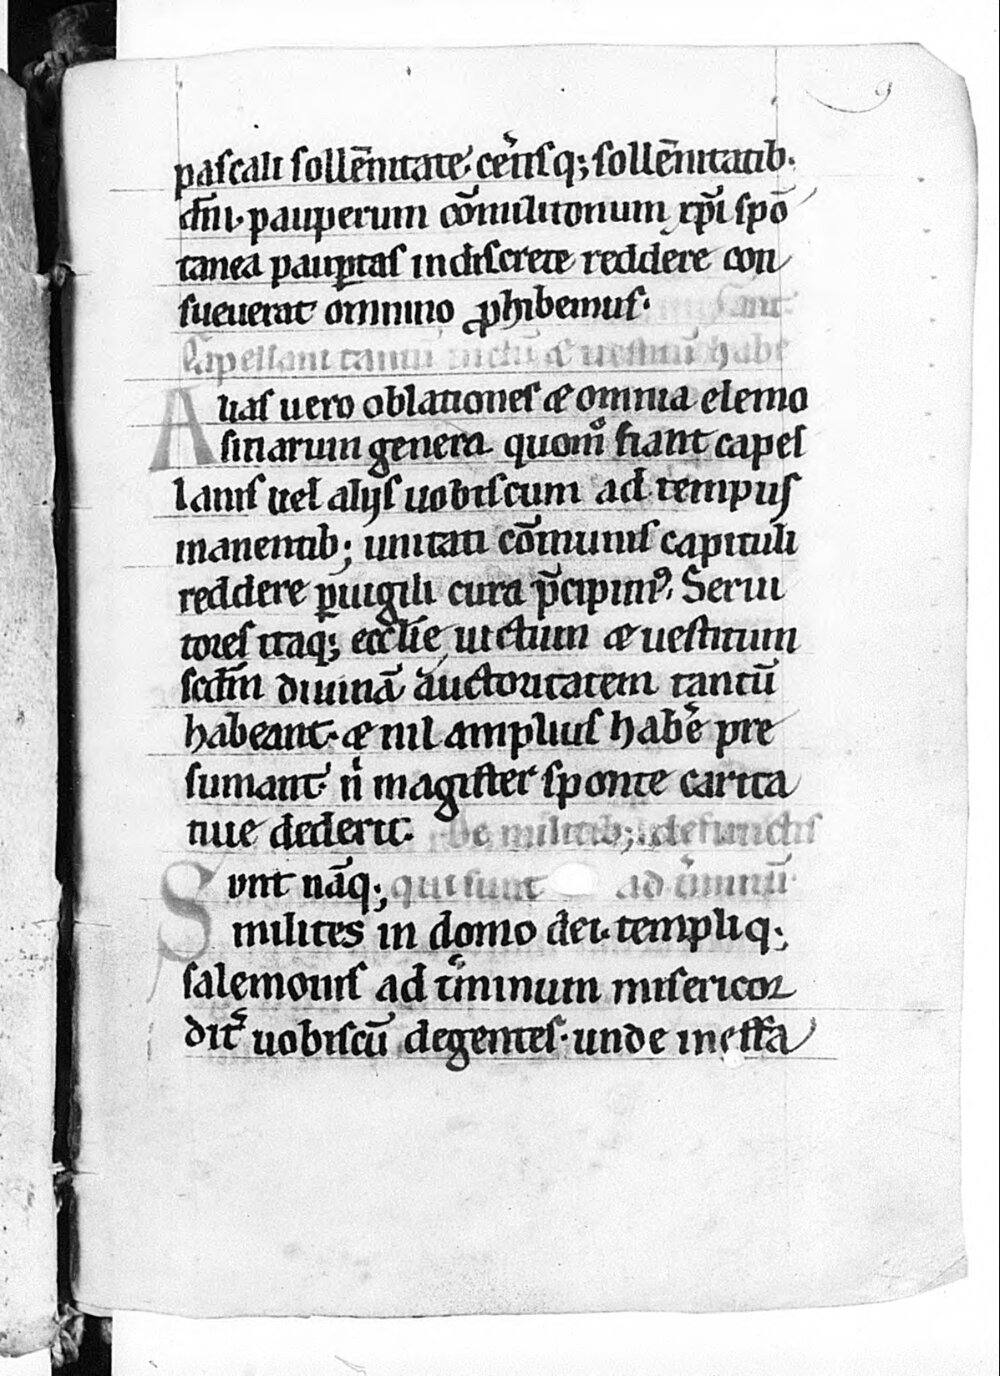 pascali sollēnitate. cet̾isq; sollēnitatib.
dn̄i. pauperum cōmilitonum xp̄i spō
tanea paup̱tas indiscrete reddere con
sueuerat omnino ꝓhibemus.
Capellani tantū uictū & uestitū habe
ant.
Alias uero oblationes & omnia elemo
sinarum genera quomͦ fiant capel
lanis uel̄ alijs uobiscum ad tempus
manentib; unitati cōmunis capituli
reddere p̱uigili cura p̄cipimꝰ. Serui
tores itaq; eccl̄ie, uictum & uestitum
scd̄m diuinā auctoritatem tantū
habeant. & nil amplius habe̾ pre
sumant. ni magister sponte carita
tiue dederit.
De militib; defunctis
Sunt nāq; qui sunt ad t̾minū.
milites in domo dei templiq;
salemonis ad t̾minum misericor
dit̾ uobiscū degentes. unde ineffa